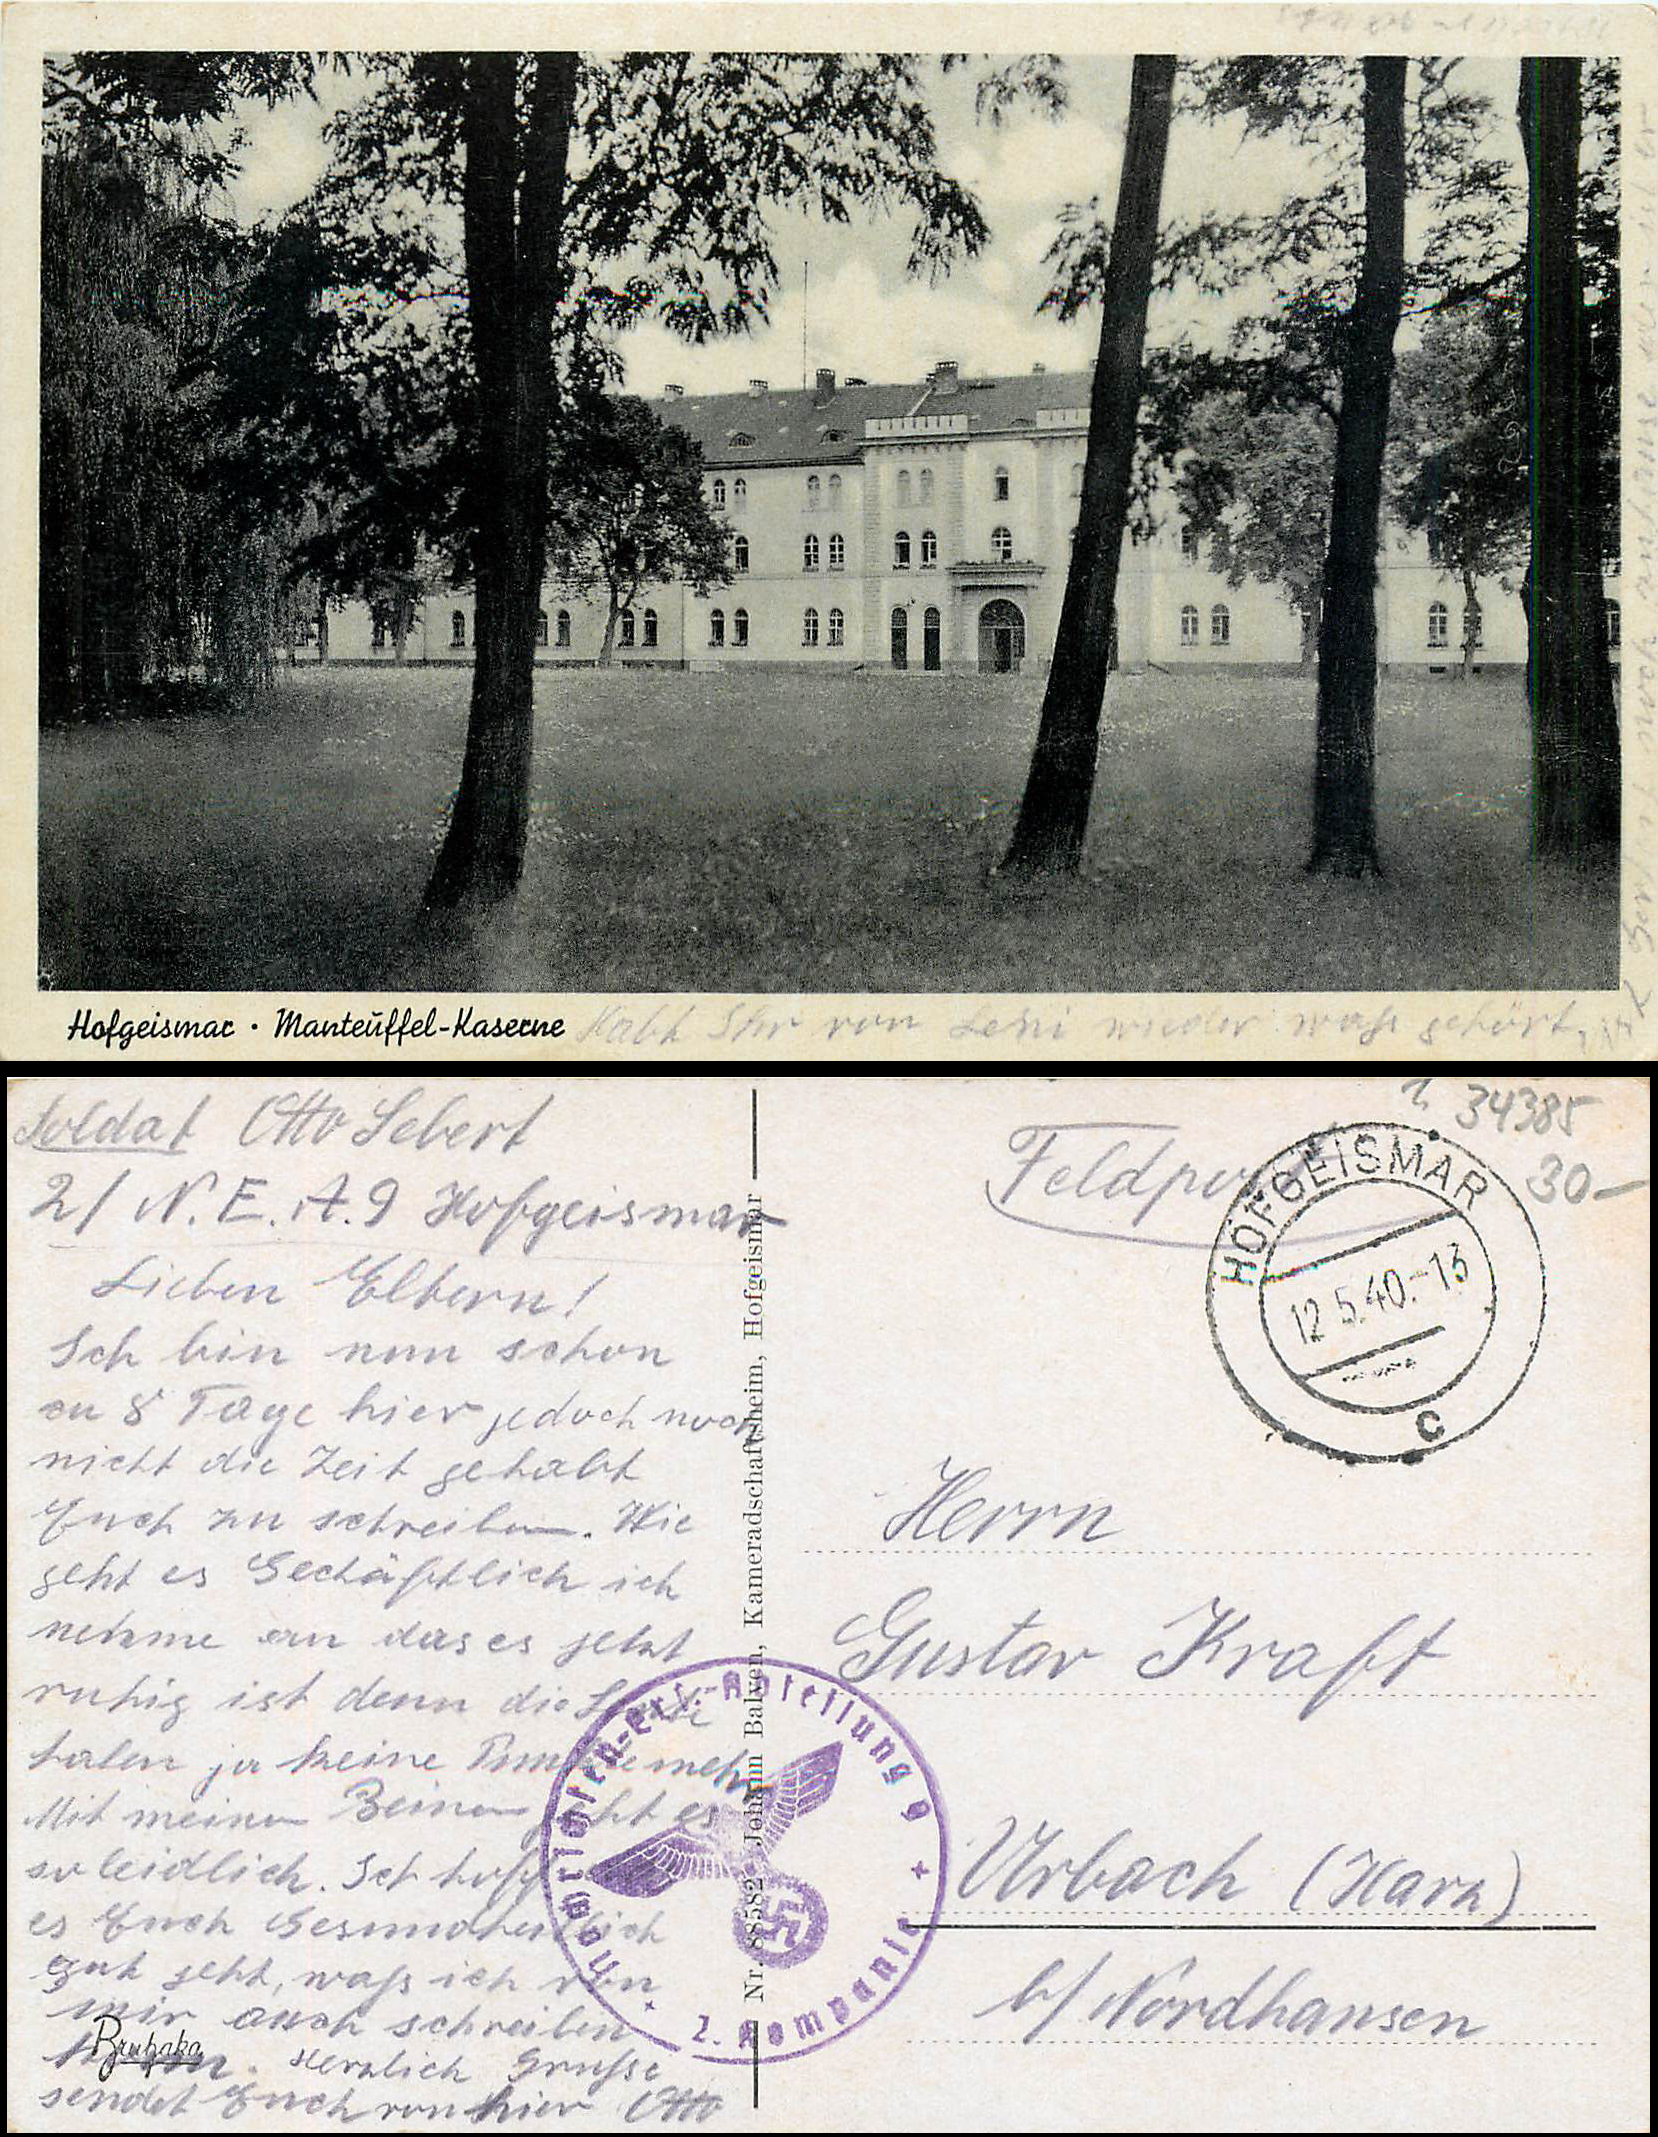 Hofgeismar · Manteuffel-Kaserne
Habt Ihr von Leni wieder waß gehört,
Soldat Otto Sebert
2/ N.E.A.9 Hofgeismar
Lieben Eltern!
Ich bin nun schon
an 8 Tage hier jedoch noch
nicht die Zeit gehabt
Euch zu schreiben. Wie
geht es Geschäftlich ich
nehme an das es jetzt
ruhig ist denn die
haben ja keine mehr
Mit meinen Beinen geht es
so leidlich. Ich hoffe
es Euch
gut geht, waß ich von
mir auch schreiben
kann. Herzlich Grüße
sendet Euch von hier Otto
Bruhaka
Nr. 88582 Johann Balven, Kameradschaftsheim, Hofgeismar
Nachrichten-Ers.-Abteilung 9
2. Kompanie
Feldpost
34385
30-
HOFGEISMAR
12.5.40.-13
c
Herrn
Gustav Kraft
Urbach (Harz)
b/ Nordhausen